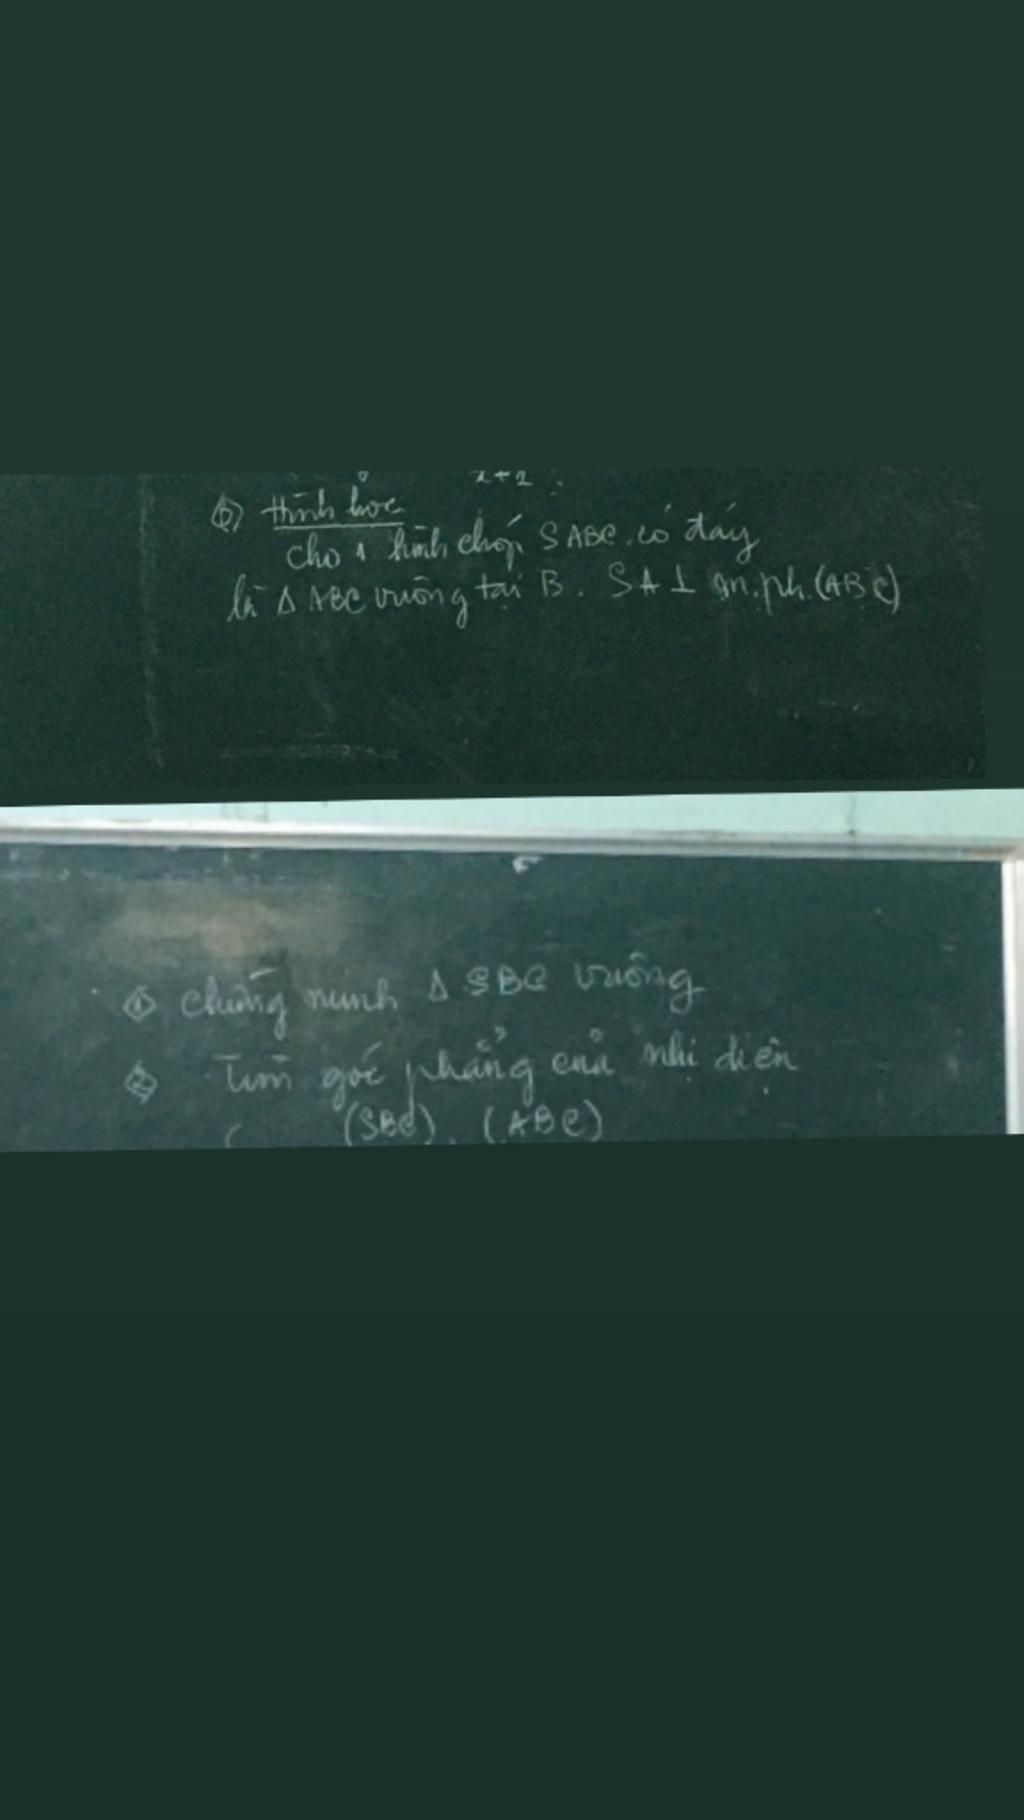 x+2
⑥ Hình học
Cho 1 hình chóp SABC. có đáy
là Δ ABC vuông tại B. SA ⊥ m.ph.(ABC)
① Chứng minh Δ SBC vuông
② Tìm góc phẳng của nhị diện
( (SBC), (ABC)